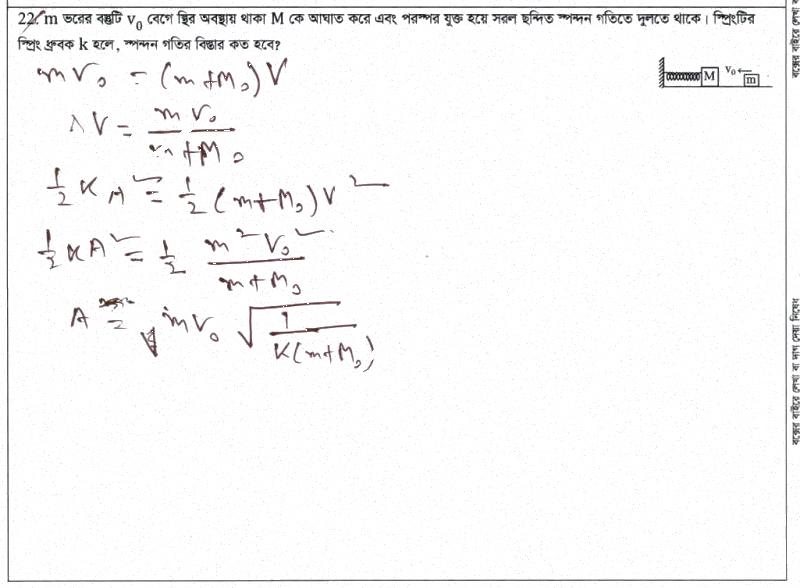 22. m ভরের বস্তুটি v₀ বেগে স্থির অবস্থায় থাকা M কে আঘাত করে এবং পরস্পর যুক্ত হয়ে সরল ছন্দিত স্পন্দন গতিতে দুলতে থাকে। স্প্রিংটির
স্প্রিং ধ্রুবক k হলে, স্পন্দন গতির বিস্তার কত হবে?
M v₀ m
mV₀ = (m+M₀)V
V = mV₀ / m+M₀
½KA² = ½(m+M₀)V²
½KA² = ½ m²V₀² / m+M₀
A = mV₀ √(1 / K(m+M₀))
বক্সের বাইরে লেখা বা দাগ দেয়া নিষেধ